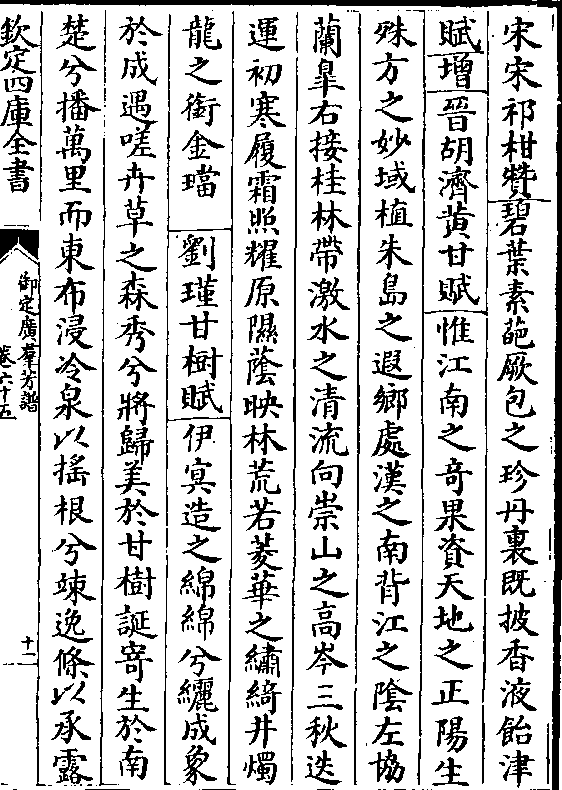 宋宋祁柑贊碧葉素葩厥包之珍丹裏既披香液飴津
賦增晉胡濟黃甘賦惟江南之奇果資天地之正陽生
殊方之妙域植朱島之遐鄉處漢之南背江之陰左協
蘭皐右接桂林帶激水之清流向崇山之高岑三秋迭
運初寒履霜照耀原隰蔭映林荒若菱華之繡綺井燭
龍之銜金璫劉瑾甘樹賦伊寘造之綿綿兮纚成象
於成遇嗟卉草之森秀兮將歸美於甘樹誕寄生於南
楚兮播萬里而東布浸冷泉以搖根兮竦逸條以承露
欽定四庫全書
御定廣羣芳譜
卷六十五
十一